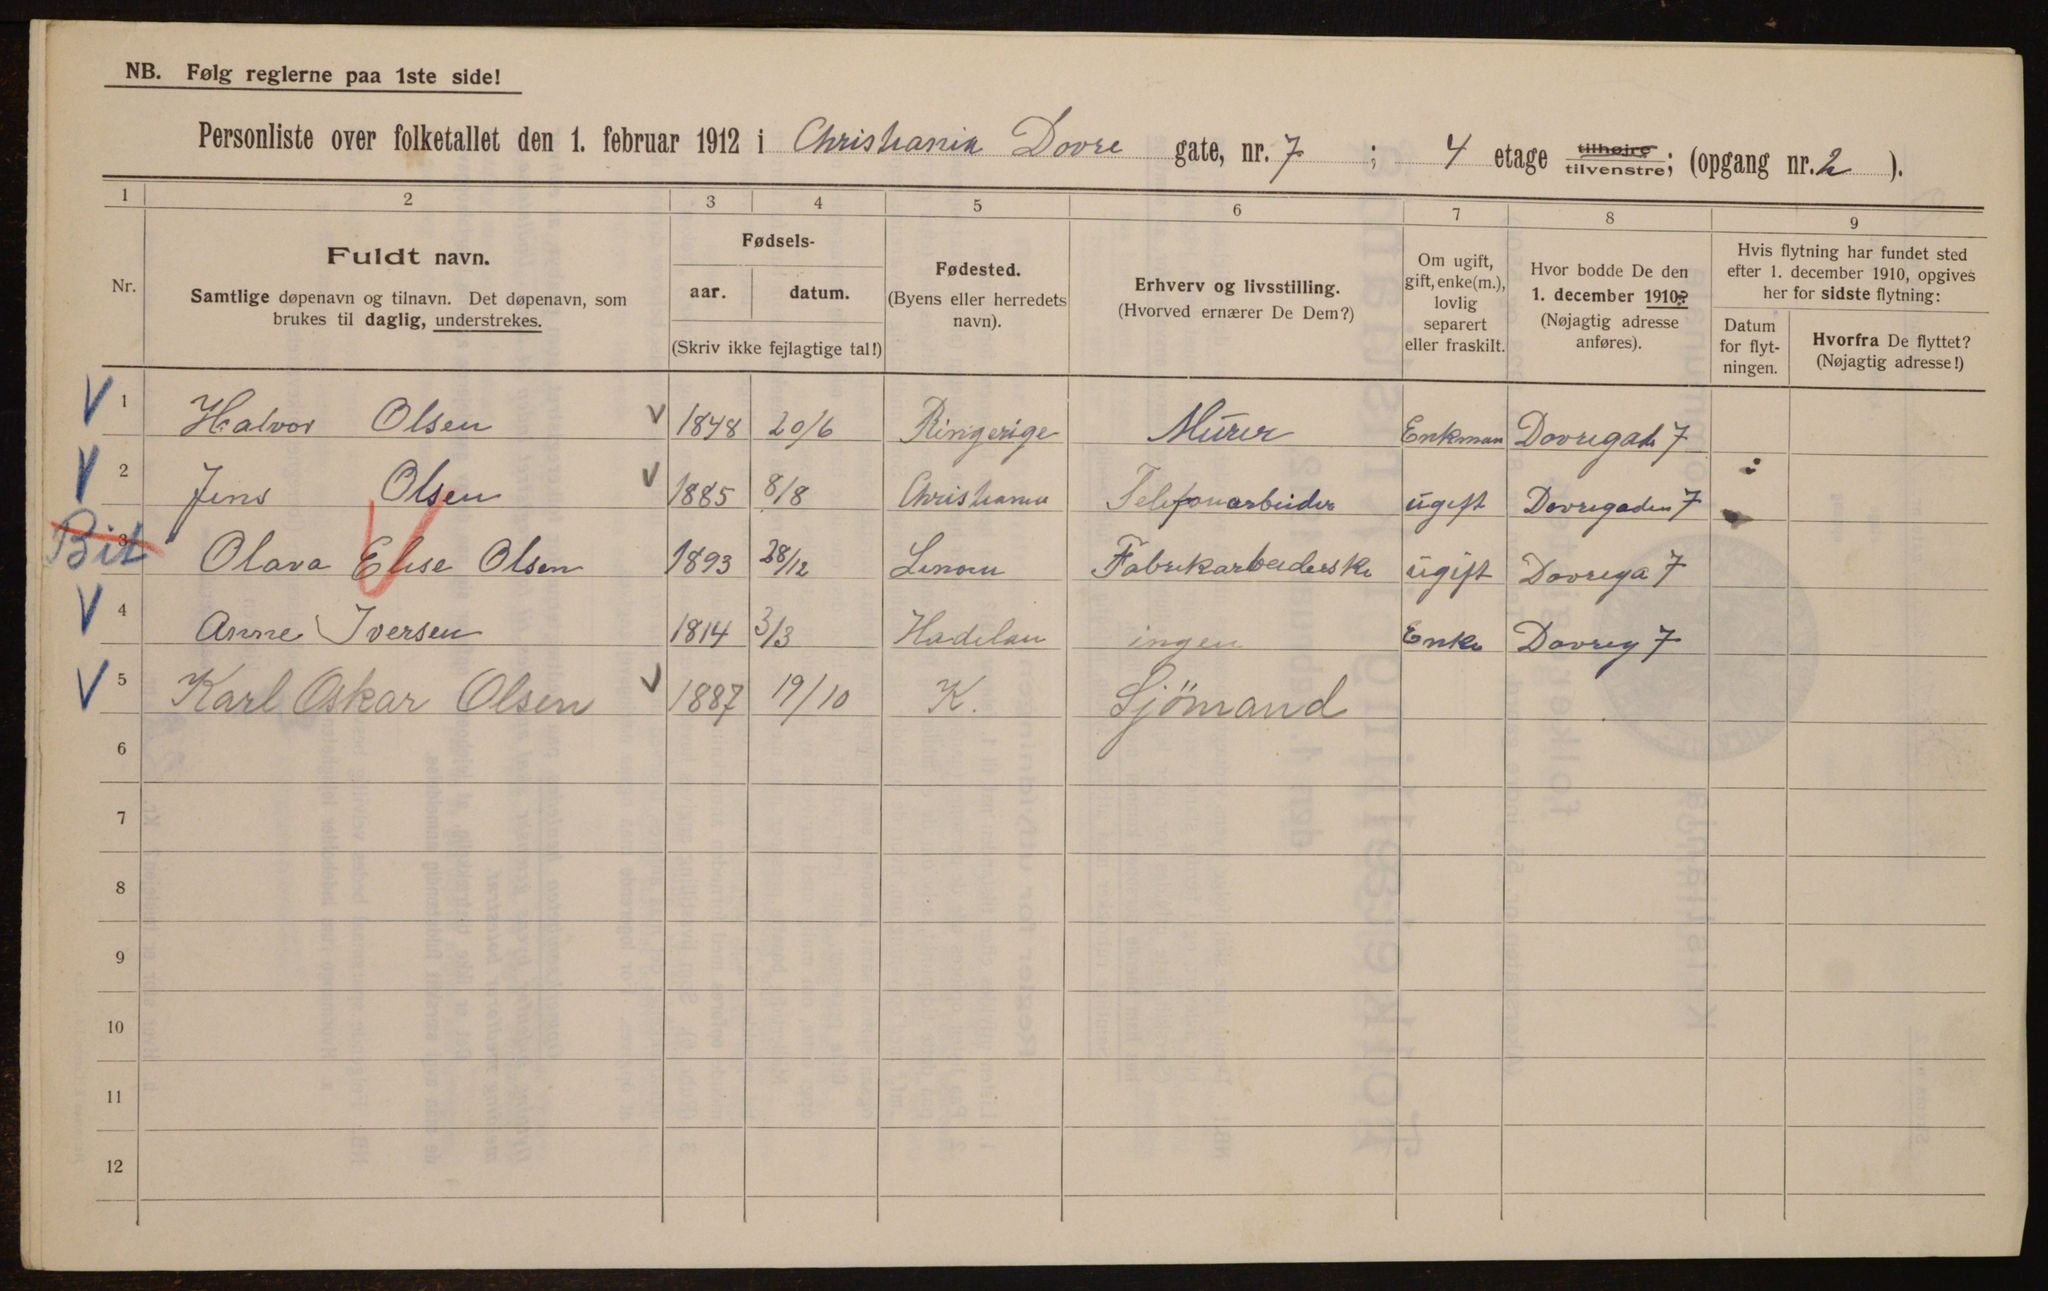 NB. Følg reglerne paa 1ste side!
Personliste over folketallet den 1. februar 1912 i Christiania Dovre gate, nr. 7 ; 4 etage tilhøjre tilvenstre; (opgang nr. 2 ).
1 2 3 4 5 6 7 8 9
Nr.
Fuldt navn.
Samtlige døpenavn og tilnavn. Det døpenavn, som
brukes til daglig, understrekes.
Fødsels-
aar. datum.
(Skriv ikke fejlagtige tal!)
Fødested.
(Byens eller herredets
navn).
Erhverv og livsstilling.
(Hvorved ernærer De Dem?)
Om ugift,
gift, enke(m.),
lovlig
separert
eller fraskilt.
Hvor bodde De den
1. december 1910?
(Nøjagtig adresse
anføres).
Hvis flytning har fundet sted
efter 1. december 1910, opgives
her for sidste flytning:
Datum
for flyt-
ningen.
Hvorfra De flyttet?
(Nøjagtig adresse!)
V 1 Halvor Olsen V 1848 20/6 Ringerige Murer Enkman Dovregade 7
V 2 Jens Olsen V 1885 8/8 Christiania Telefonarbeider ugift Dovregaden 7
Bit 3 Olava Elise Olsen 1893 28/12 Fabrikarbeiderske ugift Dovrega 7
V 4 Anne Iversen 1814 3/3 Hadelan ingen Enke Dovreg 7
V 5 Karl Oskar Olsen V 1887 19/10 K. Sjömand
6
7
8
9
10
11
12